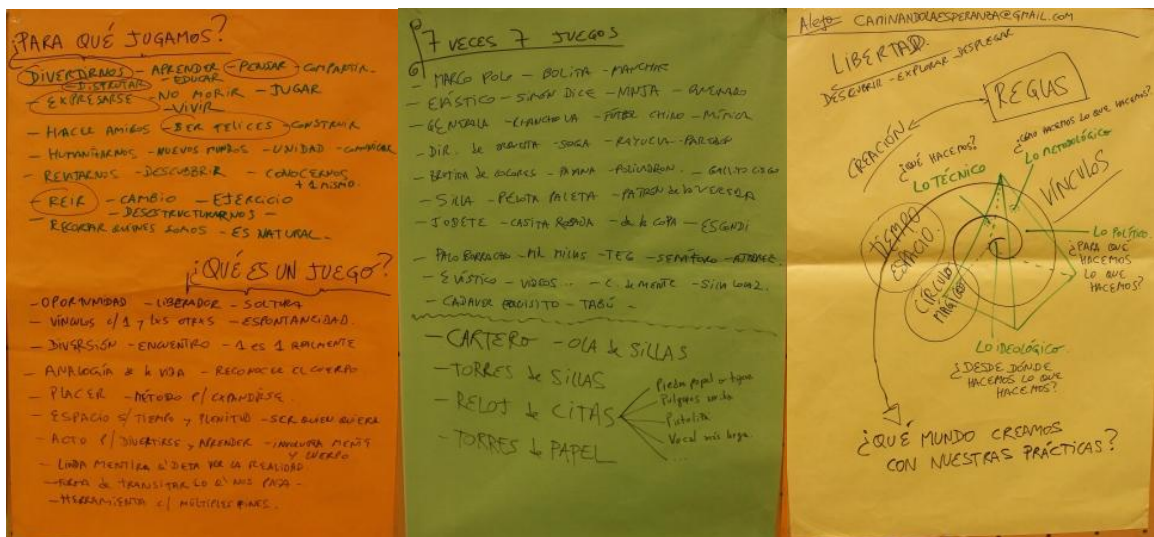 ¿PARA QUÉ JUGAMOS?
DIVERTIRNOS - APRENDER - PENSAR - COMPARTIR -
- DISFRUTAR - EDUCAR
- EXPRESARSE - NO MORIR - JUGAR
- VIVIR
- HACER AMIGOS - SER FELICES - CONSTRUIR
- HUMANIZARNOS - NUEVOS MUNDOS - UNIDAD - COMUNICAR
- DESCUBRIR - CONOCERNOS
+ 1 MISMO.
- REIR - CAMBIO - EJERCICIO
- DESESTRUCTURARNOS -
- RECORDAR QUIENES SOMOS - ES NATURAL -
¿QUÉ ES UN JUEGO?
- OPORTUNIDAD - LIBERADOR - SOLTURA
- VÍNCULOS c/1 y lxs OTRXS - ESPONTANEIDAD.
- DIVERSIÓN - ENCUENTRO - 1 es 1 REALMENTE
- ANALOGÍA de la VIDA - RECONOCER EL CUERPO
- PLACER - MÉTODO P/ EXPANDIRSE.
- ESPACIO S/ TIEMPO y PLENITUD - SER QUIEN QUIERA
- ACTO P/ DIVERTIRSE y APRENDER - INVOLUCRA MENTE
Y CUERPO
- LINDA MENTIRA Q' DEJA VER LA REALIDAD
- FORMA de TRANSITAR LO Q' NOS PASA -
- HERRAMIENTA c/ MÚLTIPLES FINES.
7 VECES 7 JUEGOS
- MARCO POLO - BOLITA - MANCHA
- ELÁSTICO - SIMÓN DICE - NINJA - QUEMADO
- GENERALA - CHANCHO VA - FÚTBOL CHINO - MÍMICA
- DIR. de ORQUESTA - SOGA - RAYUELA
- GALLITO CIEGO
- SILLA - PELOTA PALETA - PATRÓN de la VEREDA
- CASITA ROBADA - de la COPA - ESCONDI
- PALO BORRACHO - MIL MILLAS - TEG - SEMÁFORO
- ELÁSTICO - VIDEOS ... - C. de MENTE - SILLA LOCA
- CADAVER EXQUISITO - TABÚ -
- CARTERO - OLA de SILLAS
- TORRES de SILLAS
- RELOJ de CITAS
Piedra papel o tijera
Pulgares
Vocal más larga
...
- TORRES de PAPEL
Alejo CAMINANDOLAESPERANZA@GMAIL.COM
LIBERTAD
DESCUBRIR - EXPLORAR - DESPLEGAR
REGLAS
CREACIÓN
¿CÓMO HACEMOS LO QUE HACEMOS?
¿QUÉ HACEMOS?
LO METODOLÓGICO
LO TÉCNICO
VÍNCULOS
TIEMPO
ESPACIO
LO POLÍTICO
¿PARA QUÉ
HACEMOS
LO QUE
HACEMOS?
CÍRCULO
MÁGICO
LO IDEOLÓGICO
¿DESDE DÓNDE
HACEMOS LO QUE
HACEMOS?
¿QUÉ MUNDO CREAMOS
CON NUESTRAS PRÁCTICAS?